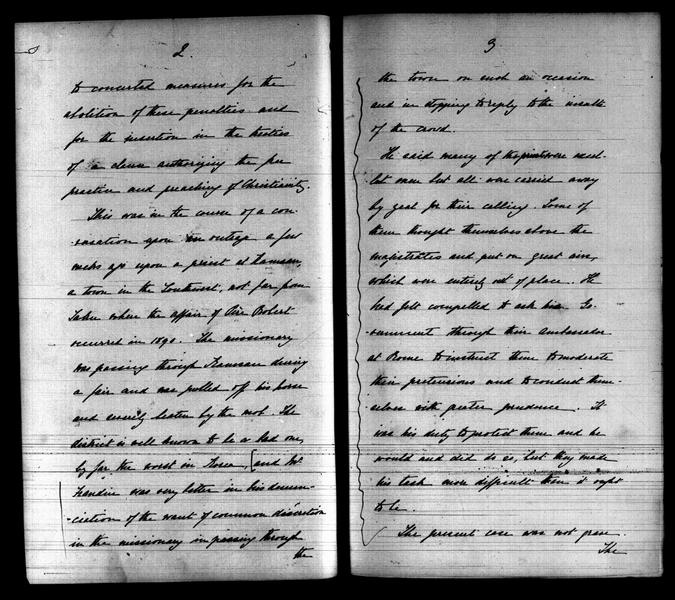 2.
to concerted measures for the
abolition of these penalties and
for the insertion in the treaties
of a clause authorizing the free
practice and preaching of Christianity.
This was in the course of a con-
versation upon an outrage a few
weeks ago upon a priest at
a town in the Southwest, not far from
Taku where the affair of Père Robert
occurred in 1890. The missionary
was passing through during
a fair and was pulled off his horse
and severely beaten by the mob. The
district is well known to be a bad one,
by far the worst in Korea, and Mr
Frandin was very bitter in his denun-
-ciation of the want of common discretion
in the missionary in passing through
the
3
the town on such an occasion
and in stopping to reply to the insults
of the crowd.
He said many of the priests were excel-
lent men but all were carried away
by zeal for their calling. Some of
them thought themselves above the
magistrates and put on great airs,
which were entirely out of place. He
had felt compelled to ask his Go-
vernment through their Ambassador
at Rome to instruct them to moderate
their pretensions and to conduct them-
selves with greater prudence. It
was his duty to protect them and he
would and did do so, but they made
his task more difficult than it ought
to be.
The present case was not grave.
The